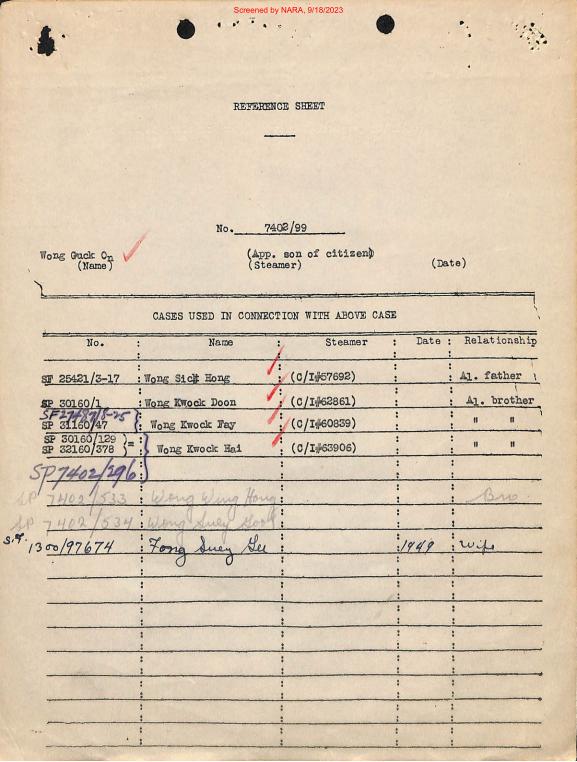 Screened by NARA, 9/18/2023
REFERENCE SHEET
No. 7402/99
Wong Guck On (App. son of citizen)
(Name) (Steamer) (Date)
CASES USED IN CONNECTION WITH ABOVE CASE
No. Name Steamer Date Relationship
SF 25421/3-17 Wong Sick Hong (C/I#57692) Al. father
SP 30160/1 Wong Kwock Doon (C/I#62861) Al. brother
SF27487/8-25
SP 31160/47 Wong Kwock Fay (C/I#60839) " "
SP 30160/129
SP 32160/378 = Wong Kwock Hai (C/I#63906) " "
SP7402/296
SP 7402/533 Wong Wing Hong Bro
SP 7402/534 Wong Suey
S.F. 1300/97674 Fong Suey Gee 1949 Wife